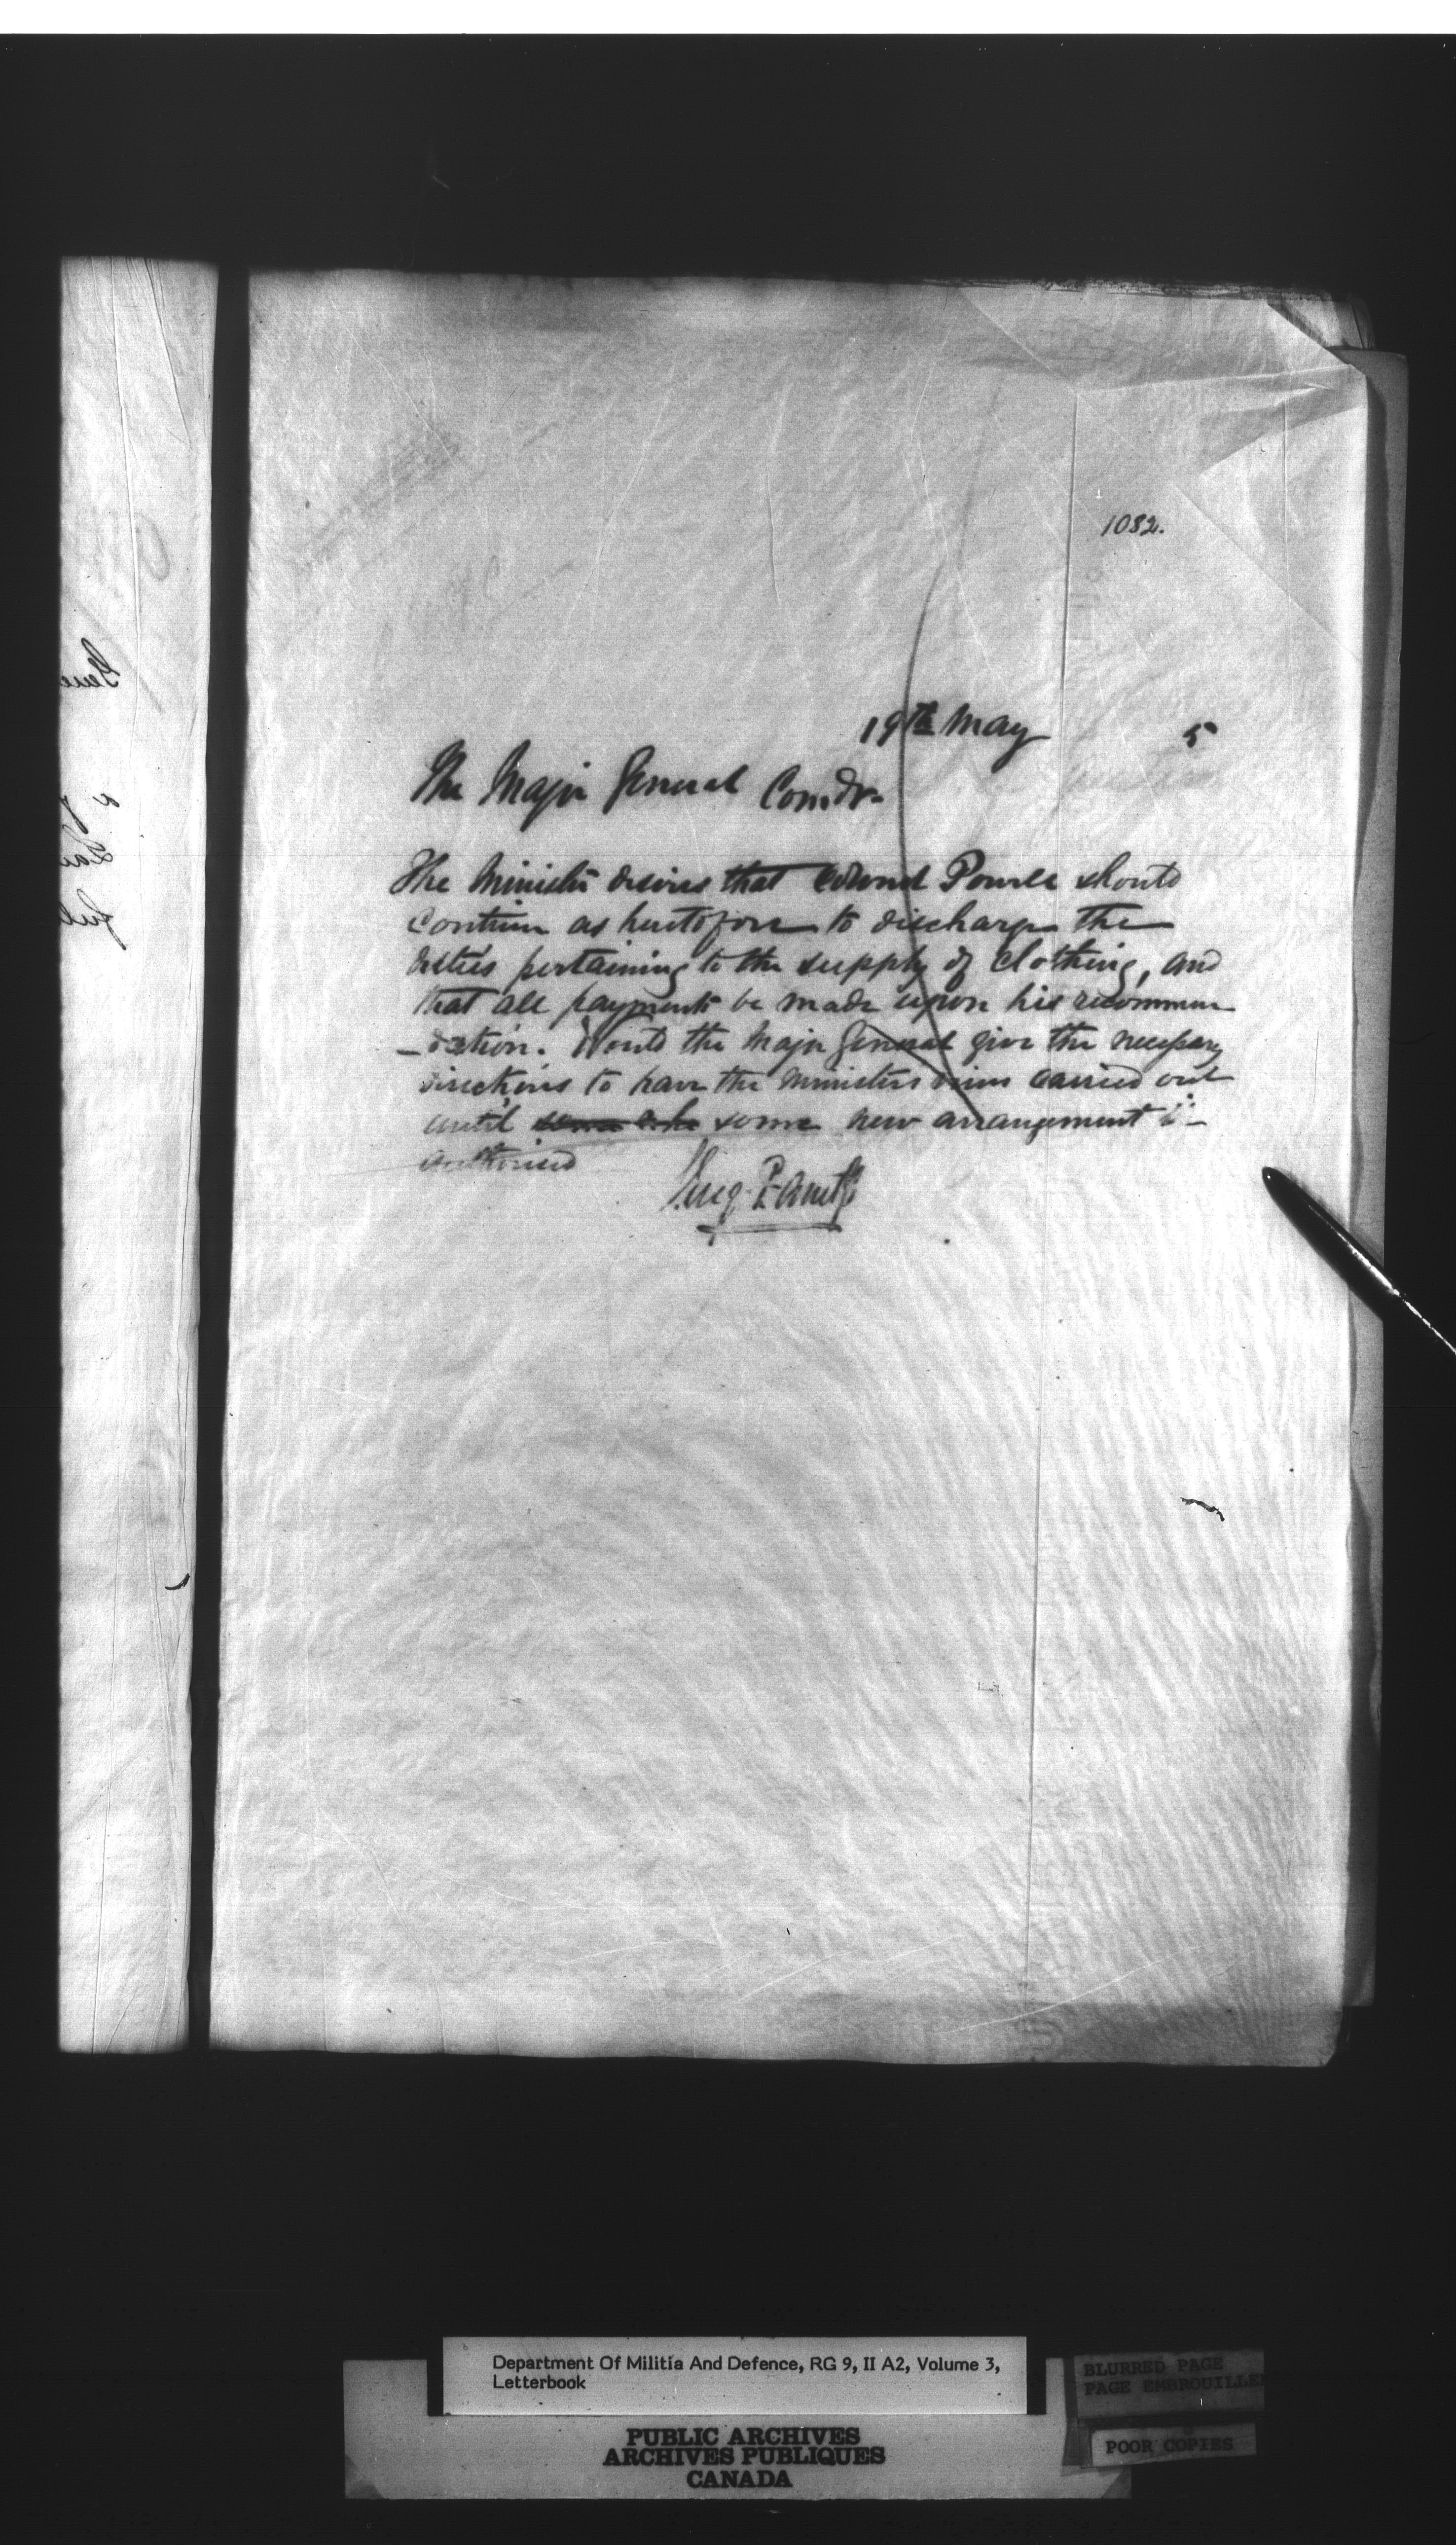 1082.
19th May 5
The Major General Comdr.
The Minister desires that Colonel Powell should
continue as heretofore to discharge the
duties pertaining to the supply of clothing, and
that all payments be made upon his recommen
-dation. Would the Major General give the necessary
directions to have the Ministers views carried out
until some new arrangement is
authorised
Panet
Department Of Militia And Defence, RG 9, II A2, Volume 3,
Letterbook
BLURRED PAGE
PAGE EMBROUILLEE
POOR COPIES
PUBLIC ARCHIVES
ARCHIVES PUBLIQUES
CANADA